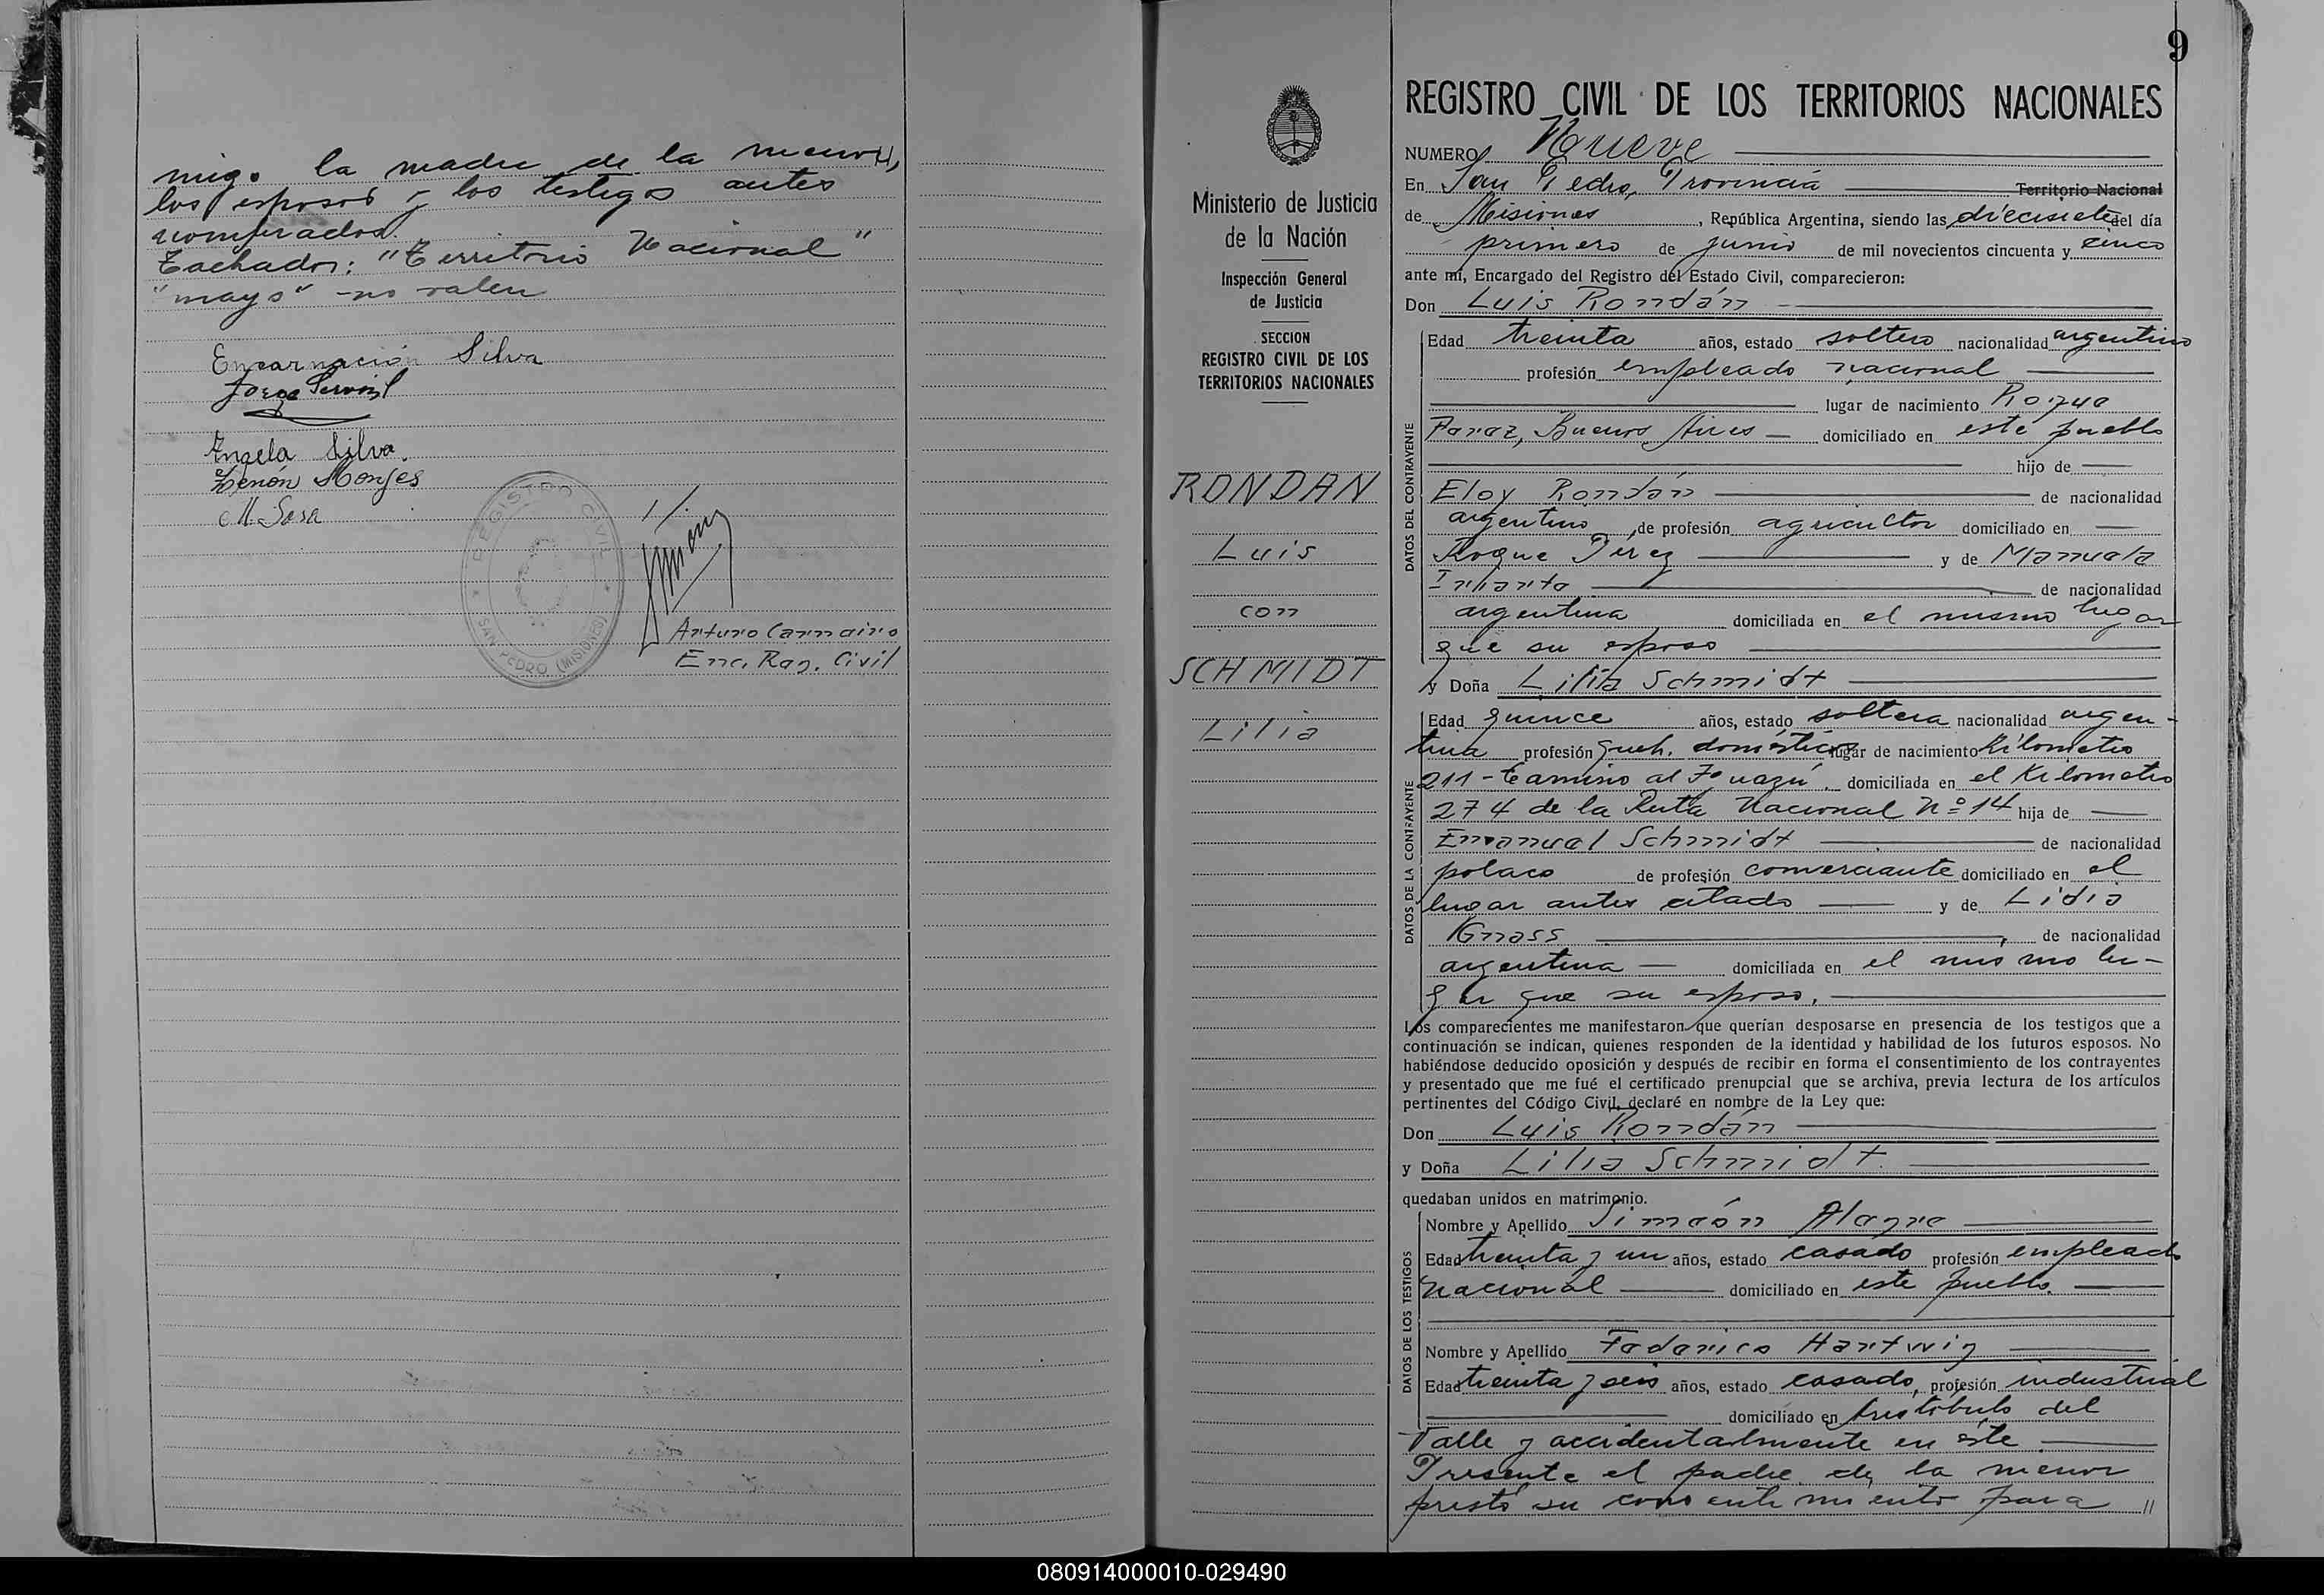 migo la madre de la menor,
los esposos y los testigos antes
nombrados.
Tachados: "Territorio Nacional"
"mayo" - no valen
Encarnación Silva
Jorge
Angela Silva.
Zenón Monjes
M. Sosa
REGISTRO CIVIL
SAN PEDRO (MISIONES)
Arturo
Enc. Reg. Civil
9
REGISTRO CIVIL DE LOS TERRITORIOS NACIONALES
Ministerio de Justicia
de la Nación
Inspección General
de Justicia
SECCION
REGISTRO CIVIL DE LOS
TERRITORIOS NACIONALES
RONDAN
Luis
con
SCHMIDT
Lilia
NUMERO Nueve
En San Pedro, Provincia Territorio Nacional
de Misiones, República Argentina, siendo las diecisiete del día
primero de junio de mil novecientos cincuenta y cinco
ante mí, Encargado del Registro del Estado Civil, comparecieron:
Don Luis Rondán
DATOS DEL CONTRAYENTE
Edad treinta años, estado soltero nacionalidad argentino
profesión empleado nacional
lugar de nacimiento Roque
Perez, Buenos Aires domiciliado en este pueblo
hijo de
Eloy Rondán de nacionalidad
argentino, de profesión agricultor domiciliado en
Roque Pérez y de Manuela
Infante de nacionalidad
argentina domiciliada en el mismo lugar
que su esposo
y Doña Lilia Schmidt
DATOS DE LA CONTRAYENTE
Edad quince años, estado soltera nacionalidad argen-
tina profesión queh. domésticos lugar de nacimiento Kilometro
211 - Camino al Iguazú. domiciliada en el Kilometro
274 de la Ruta Nacional Nº 14 hija de
Emanuel Schmidt de nacionalidad
polaco de profesión comerciante domiciliado en el
lugar antes citado y de Lidia
Knass de nacionalidad
argentina domiciliada en el mismo lu-
gar que su esposo.
Los comparecientes me manifestaron que querían desposarse en presencia de los testigos que a
continuación se indican, quienes responden de la identidad y habilidad de los futuros esposos. No
habiéndose deducido oposición y después de recibir en forma el consentimiento de los contrayentes
y presentado que me fué el certificado prenupcial que se archiva, previa lectura de los artículos
pertinentes del Código Civil, declaré en nombre de la Ley que:
Don Luis Rondán
y Doña Lilia Schmidt.
quedaban unidos en matrimonio.
DATOS DE LOS TESTIGOS
Nombre y Apellido Simeón Alegre
Edad treinta y un años, estado casado profesión empleado
nacional domiciliado en este pueblo.
Nombre y Apellido Federico Hartwig
Edad treinta y seis años, estado casado, profesión industrial
domiciliado en Aristóbulo del
Valle y accidentalmente en éste
Presente el padre de la menor
prestó su consentimiento para //
080914000010-029490